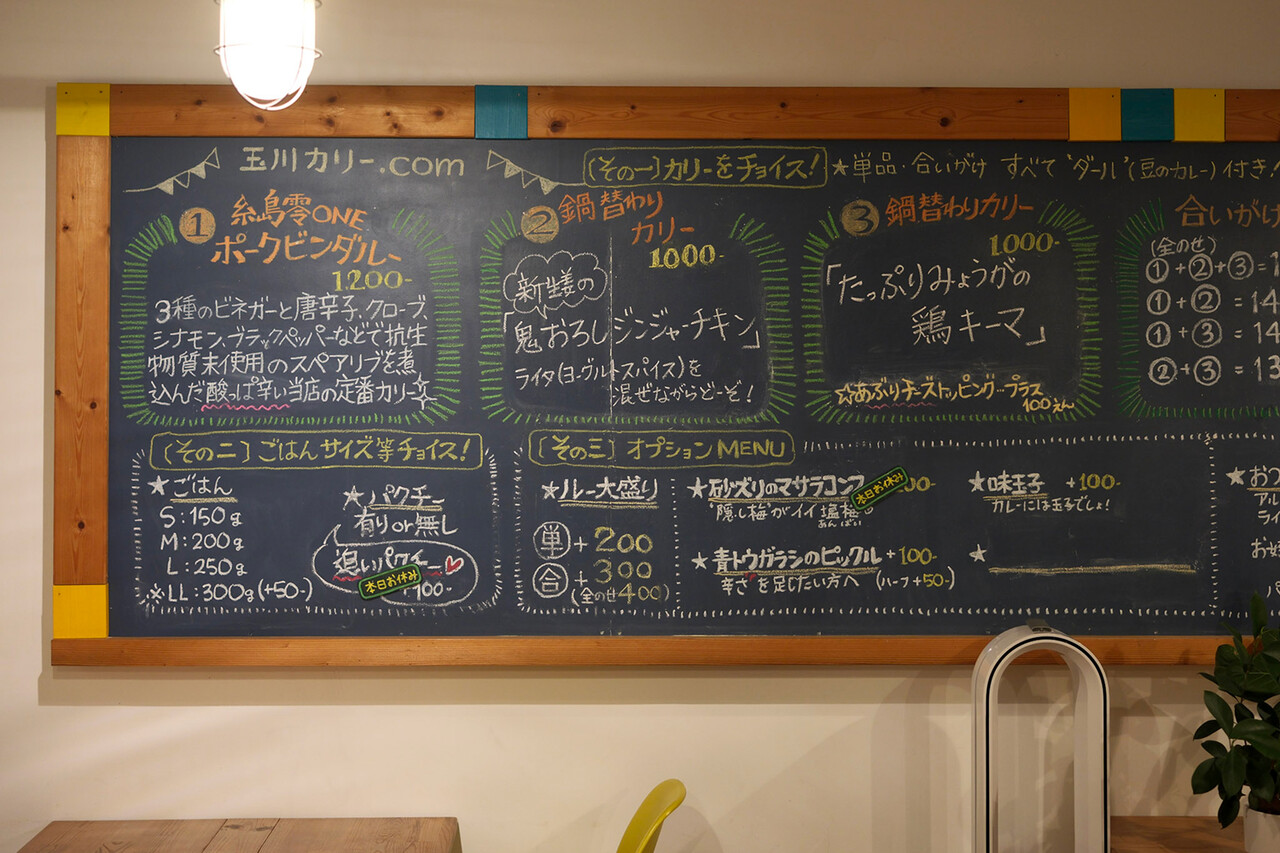 玉川カリー.com
(その一)カリーをチョイス!
★単品・合いがけ すべて"ダール"(豆のカレー)付き!
① 糸島雫ONE
ポークビンダルー
1200-
3種のビネガーと唐辛子、クローブ、
シナモン、ブラックペッパーなどで抗生
物質未使用のスペアリブを煮
込んだ酸っぱ辛い当店の定番カリー☆
② 鍋替わり
カリー
1000-
新生姜の
「鬼おろしジンジャーチキン」
ライタ(ヨーグルトスパイス)を
混ぜながらどーぞ!
③ 鍋替わりカリー
1000-
「たっぷりみょうがの
鶏キーマ」
☆あぶりチーズトッピング…プラス
100えん
合いがけ
(全のせ)
①+②+③=1
①+②=14
①+③=14
②+③=13
(その二)ごはんサイズ等チョイス!
★ごはん
S:150g
M:200g
L:250g
※LL:300g(+50-)
★パクチー
有りor無し
追いパクチー
本日お休み
+100-
(その三)オプションMENU
★ルー大盛り
単+200
合+300
(全のせ400)
★砂ズリのマサラコンフ
本日お休み
00-
"隠し梅"がイイ塩梅
あんばい
★青トウガラシのピックル +100-
辛さを足したい方へ (ハーフ+50-)
★味玉子 +100-
カレーには玉子でしょ!
★
★おつ
アル
ライ
お好
パ